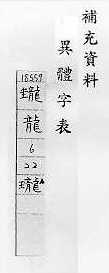 補充資料
異體字表
18557
龍
6
22